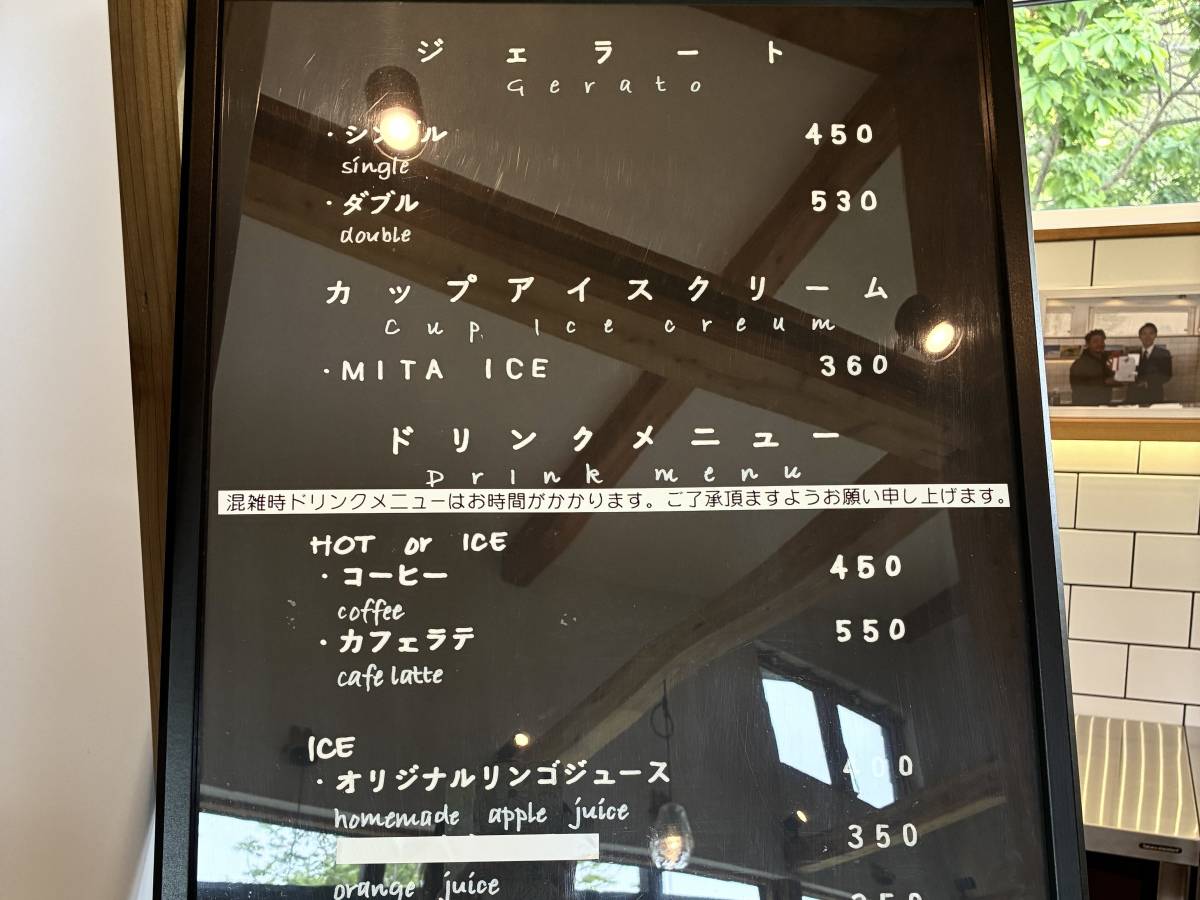 ジェラート
Gerato
・シングル 450
single
・ダブル 530
double
カップアイスクリーム
Cup Ice creum
・MITA ICE 360
ドリンクメニュー
DrInk menu
混雑時ドリンクメニューはお時間がかかります。ご了承頂ますようお願い申し上げます。
HOT or ICE
・コーヒー 450
coffee
・カフェラテ 550
cafe latte
ICE
・オリジナルリンゴジュース 400
homemade apple juice
350
orange juice